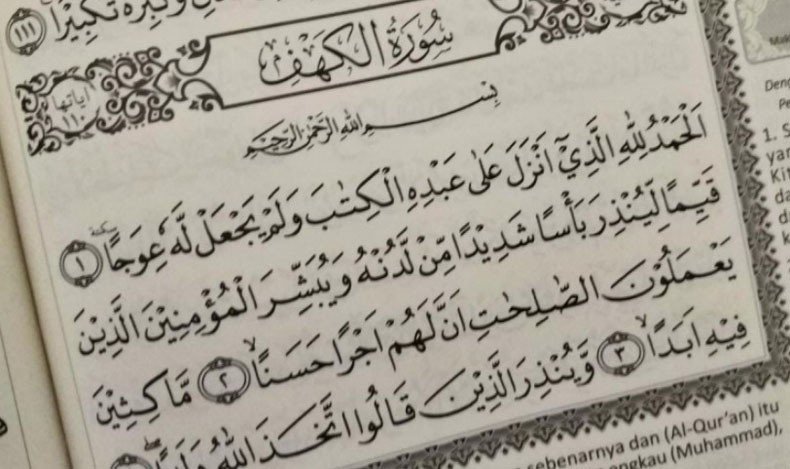 وَكَبِّرْهُ تَكْبِيْرًا ١١١
سُوْرَةُ الْكَهْفِ
اٰيَاتُهَا ١١٠
بِسْمِ اللّٰهِ الرَّحْمٰنِ الرَّحِيْمِ
اَلْحَمْدُ لِلّٰهِ الَّذِيْٓ اَنْزَلَ عَلٰى عَبْدِهِ الْكِتٰبَ وَلَمْ يَجْعَلْ لَّهٗ عِوَجًا ١
قَيِّمًا لِّيُنْذِرَ بَأْسًا شَدِيْدًا مِّنْ لَّدُنْهُ وَيُبَشِّرَ الْمُؤْمِنِيْنَ الَّذِيْنَ
يَعْمَلُوْنَ الصّٰلِحٰتِ اَنَّ لَهُمْ اَجْرًا حَسَنًا ٢ مَّاكِثِيْنَ
فِيْهِ اَبَدًا ٣ وَّيُنْذِرَ الَّذِيْنَ قَالُوا اتَّخَذَ اللّٰهُ وَلَدًا
1. S
sebenarnya dan (Al-Qur'an) itu
engkau (Muhammad),